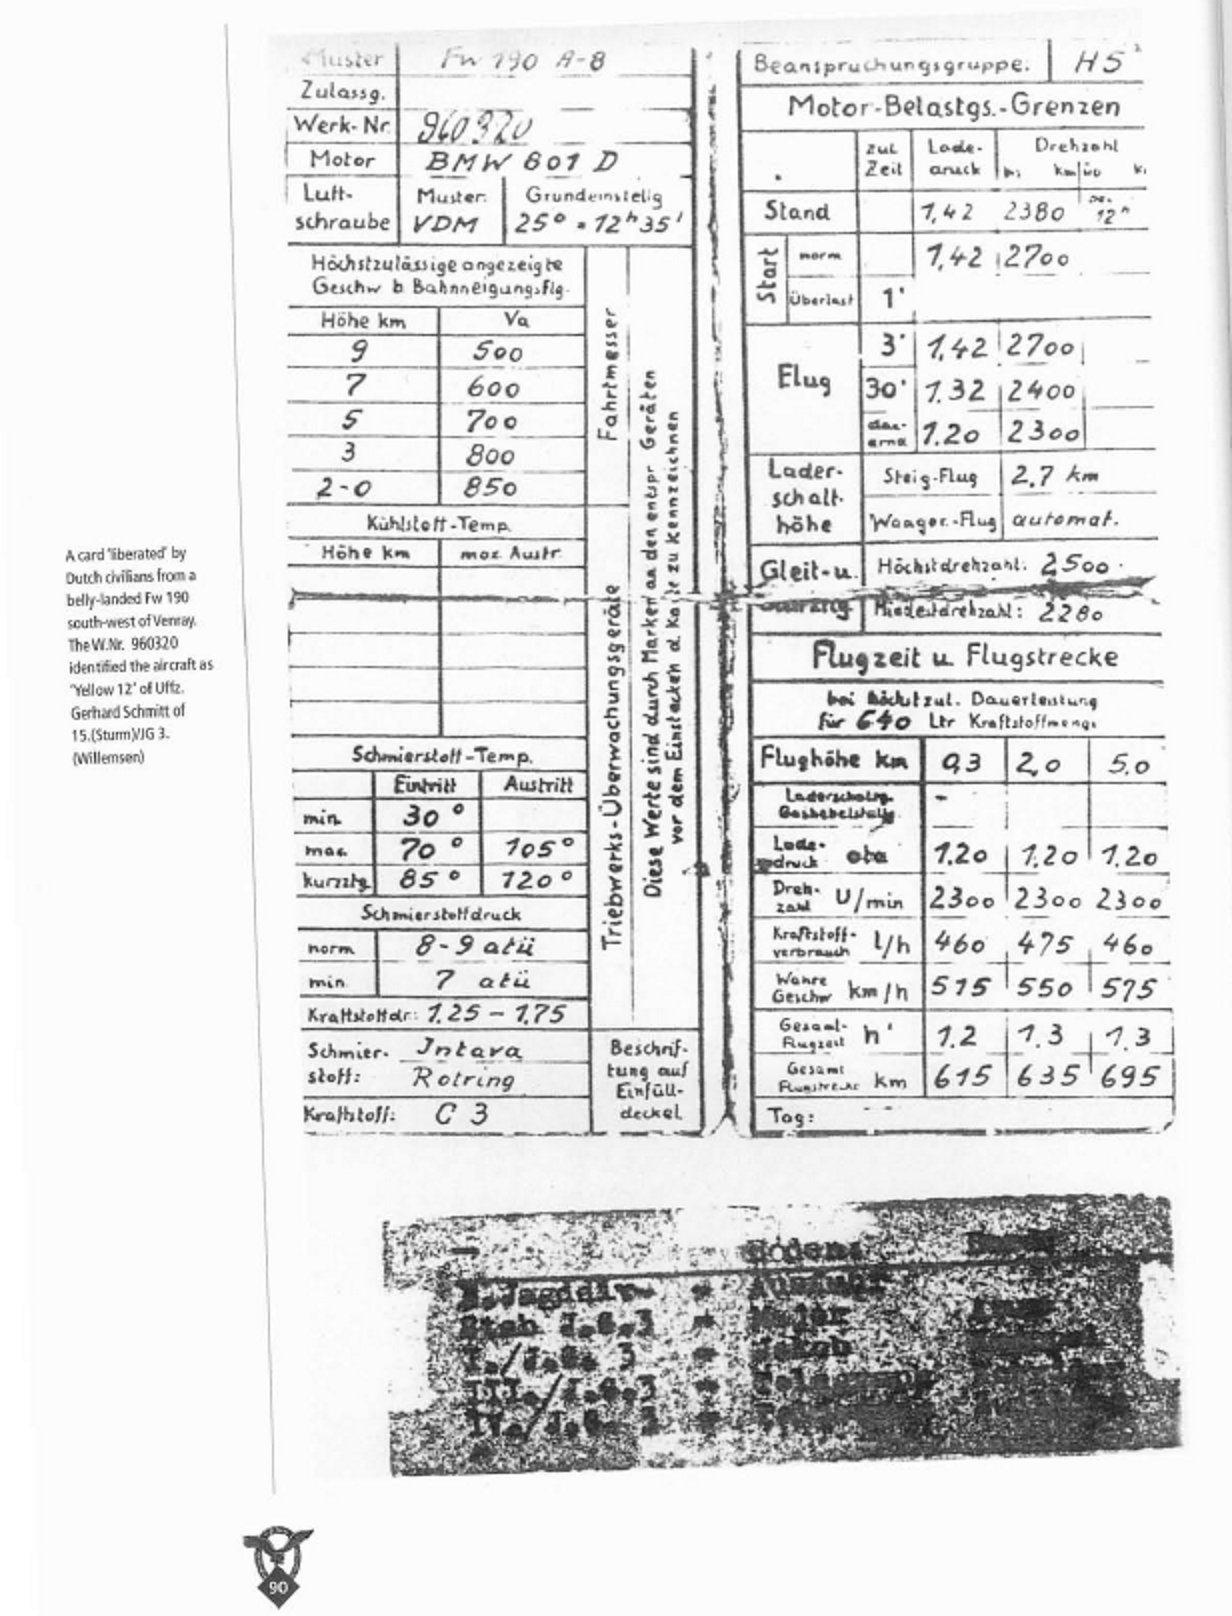 Muster Fw 190 A-8
Zulassg.
Werk-Nr. 960320
Motor BMW 801 D
Luft-
schraube
Muster: VDM
Grundeinstellg
25° = 12ʰ35'
Höchstzulässige angezeigte
Geschw b Bahnneigungsflg.
Höhe km Va
9 500
7 600
5 700
3 800
2-0 850
Fahrtmesser
Kühlstoff-Temp.
Höhe km max. Austr.
Schmierstoff-Temp.
Eintritt Austritt
min. 30°
max. 70° 105°
kurzztg. 85° 120°
Schmierstoffdruck
norm 8-9 atü
min. 7 atü
Kraftstoffdr.: 1,25 - 1,75
Triebwerks-Überwachungsgeräte
Diese Werte sind durch Marken an den entspr. Geräten
vor dem Einstecken d. Karte zu kennzeichnen
Schmier-
stoff: Intava
Rotring
Kraftstoff: C 3
Beschrif-
tung auf
Einfüll-
deckel
Beanspruchungsgruppe: H5
Motor-Belastgs.-Grenzen
zul. Zeit Lade-druck Drehzahl
Stand 1,42 2380 12ʰ
Start norm 1,42 2700
Überlast 1'
Flug 3' 1,42 2700
30' 1.32 2400
dau-ernd 1.20 2300
Lader-
schalt-
höhe
Steig-Flug 2,7 km
Waager.-Flug automat.
Gleit-u.
Höchstdrehzahl: 2500
Mindestdrehzahl: 2280
Flugzeit u. Flugstrecke
bei höchstzul. Dauerleistung
für 640 Ltr Kraftstoffmenge
Flughöhe km 0,3 2,0 5.0
Laderschaltg. -
Gashebelstellg.
Lade-druck ata 1.20 1.20 1.20
Dreh-zahl U/min 2300 2300 2300
Kraftstoff-verbrauch l/h 460 475 460
Wahre Geschw km/h 515 550 575
Gesamt-Flugzeit h' 1.2 1.3 1.3
Gesamt Flugstrecke km 615 635 695
Tag:
A card 'liberated' by
Dutch civilians from a
belly-landed Fw 190
south-west of Venray.
The W.Nr. 960320
identified the aircraft as
'Yellow 12' of Uffz.
Gerhard Schmitt of
15.(Sturm)/JG 3.
(Willemsen)
Boden:
Jagddiv.
Stab J.G.3 - Major
I./J.G. 3 -
III./J.G.3 -
IV./J.G. 3 -
90